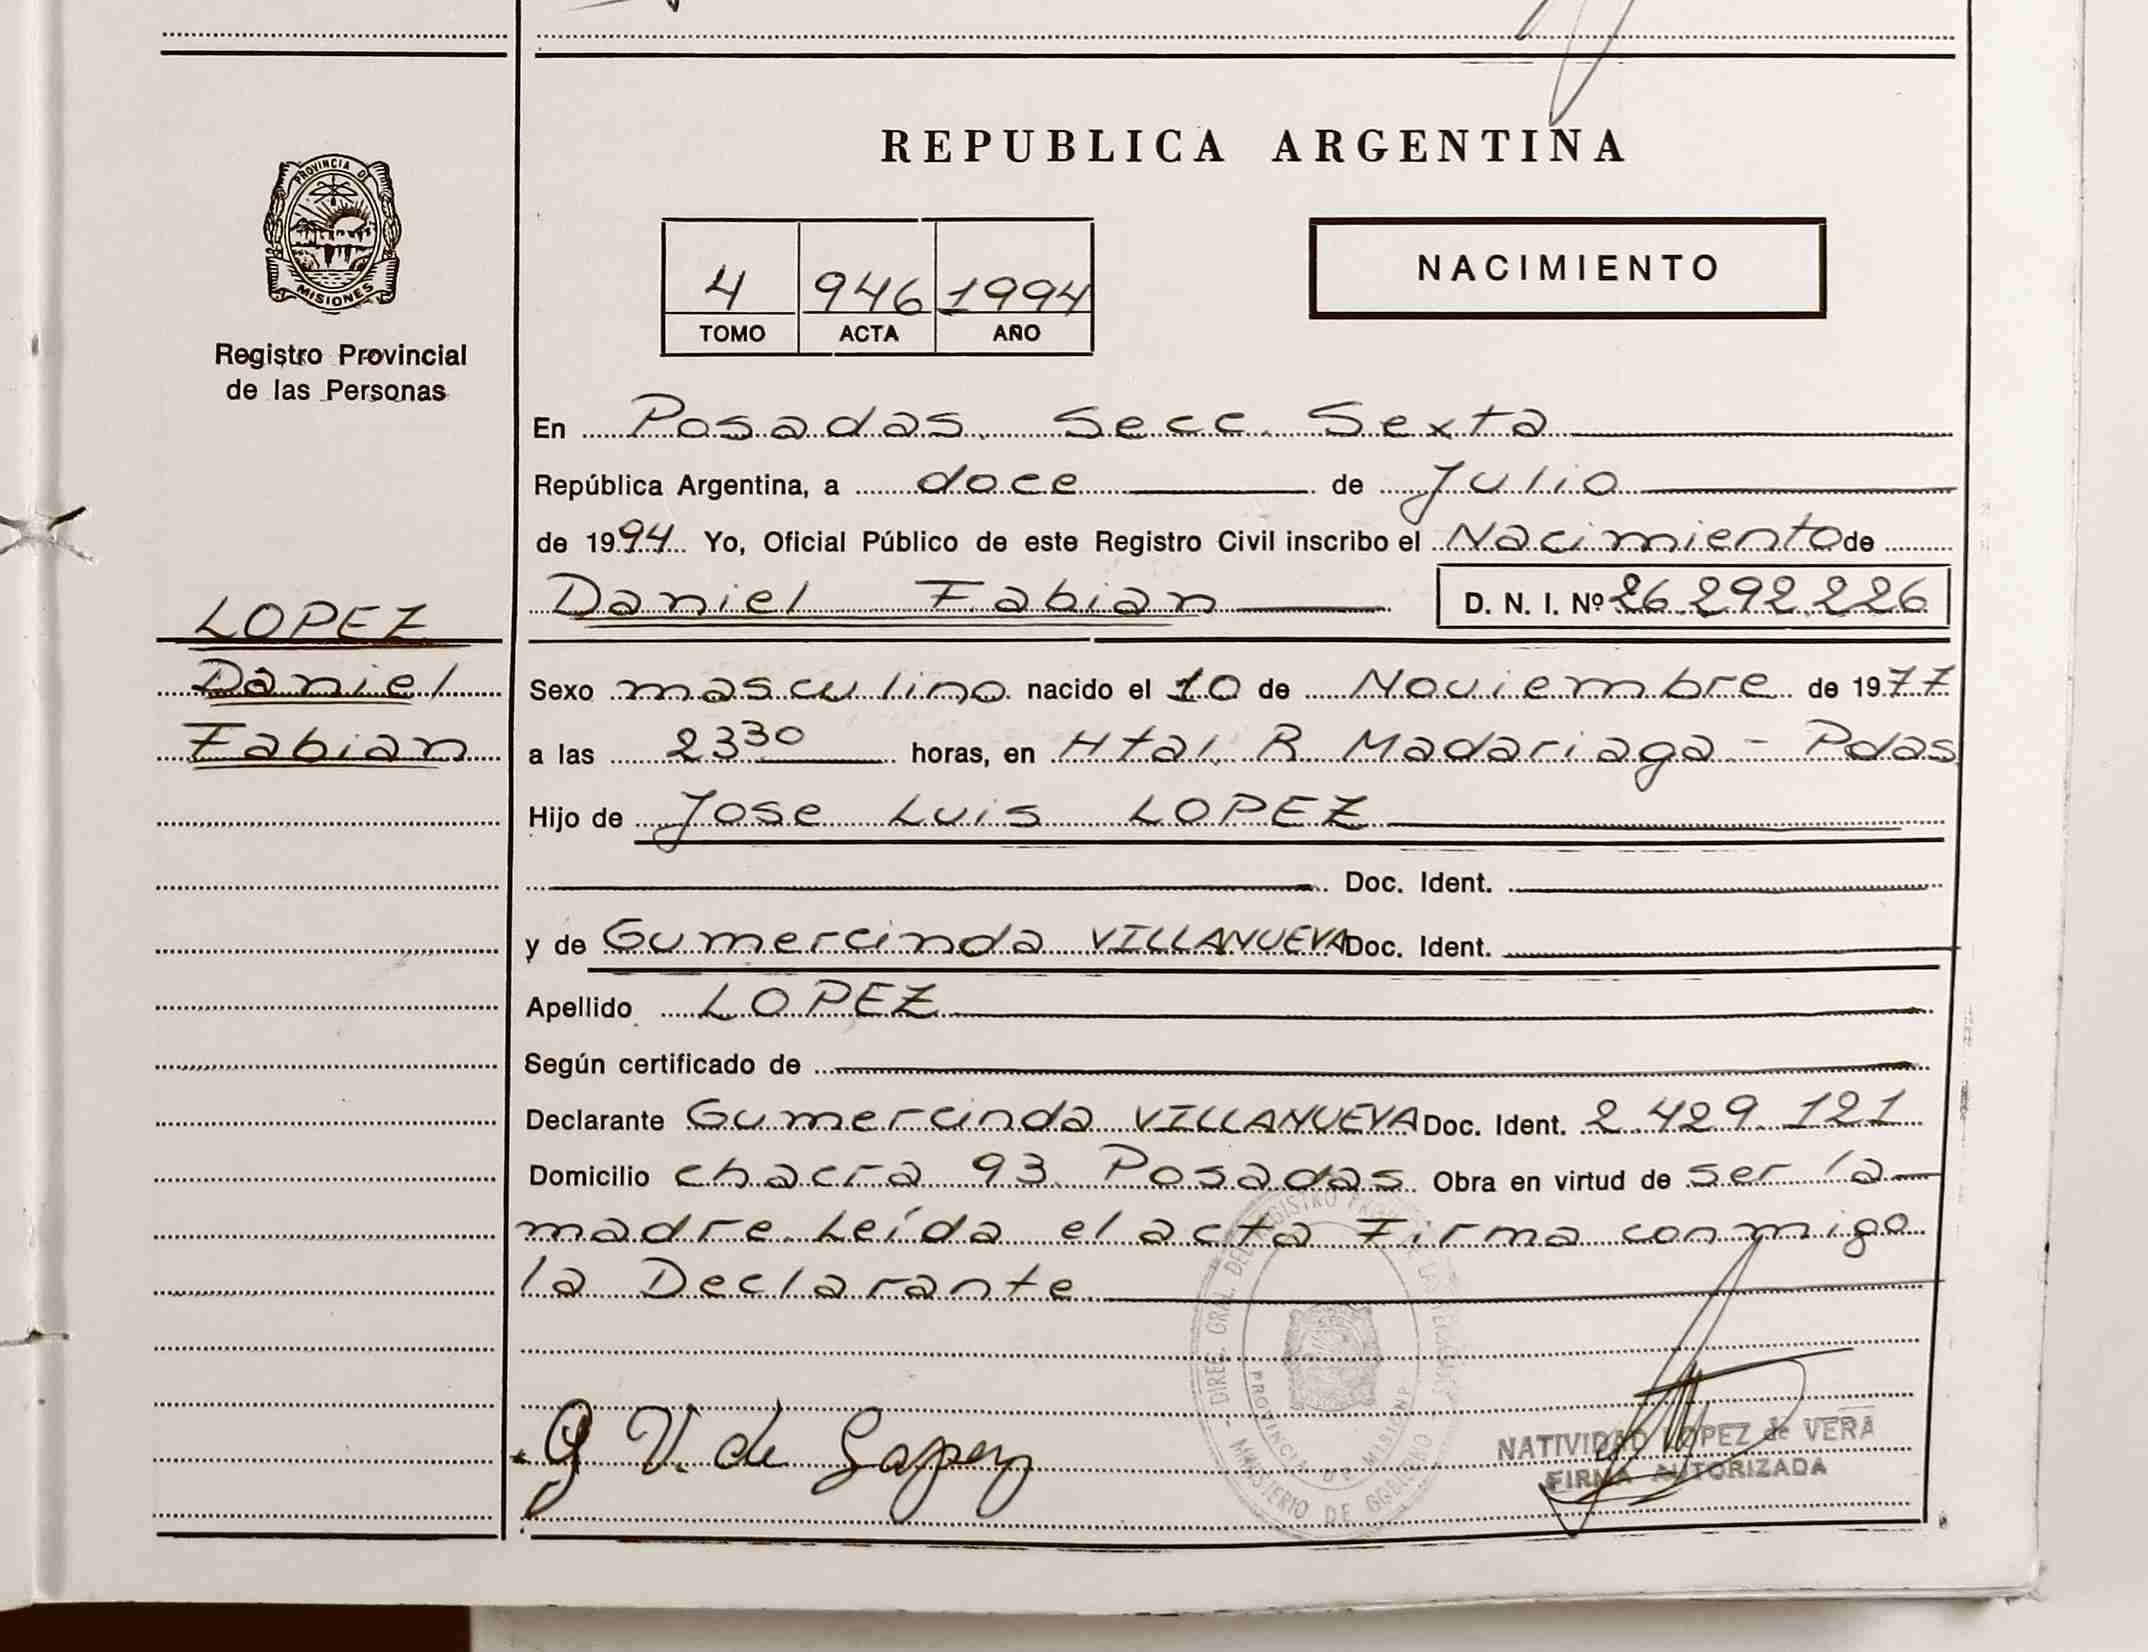 REPUBLICA ARGENTINA
PROVINCIA DE
MISIONES
Registro Provincial
de las Personas
4 946 1994
TOMO ACTA AÑO
NACIMIENTO
LOPEZ
Daniel
Fabian
En Posadas. Secc. Sexta
República Argentina, a doce de Julio
de 1994 Yo, Oficial Público de este Registro Civil inscribo el Nacimiento de
Daniel Fabian D. N. I. Nº 26 292 226
Sexo masculino nacido el 10 de Noviembre de 1977
a las 23 30 horas, en Htal. R Madariaga - Pdas
Hijo de Jose Luis LOPEZ
Doc. Ident.
y de Gumercinda VILLANUEVA Doc. Ident.
Apellido LOPEZ
Según certificado de
Declarante Gumercinda VILLANUEVA Doc. Ident. 2.429.121
Domicilio chacra 93 Posadas Obra en virtud de ser la
madre. Leída el acta Firma conmigo
la Declarante
G V. de Lopez
DIREC. GRAL. DEL REGISTRO
MINISTERIO DE GOBIERNO
PROVINCIA DE MISIONES
NATIVIDAD LOPEZ de VERA
FIRMA AUTORIZADA